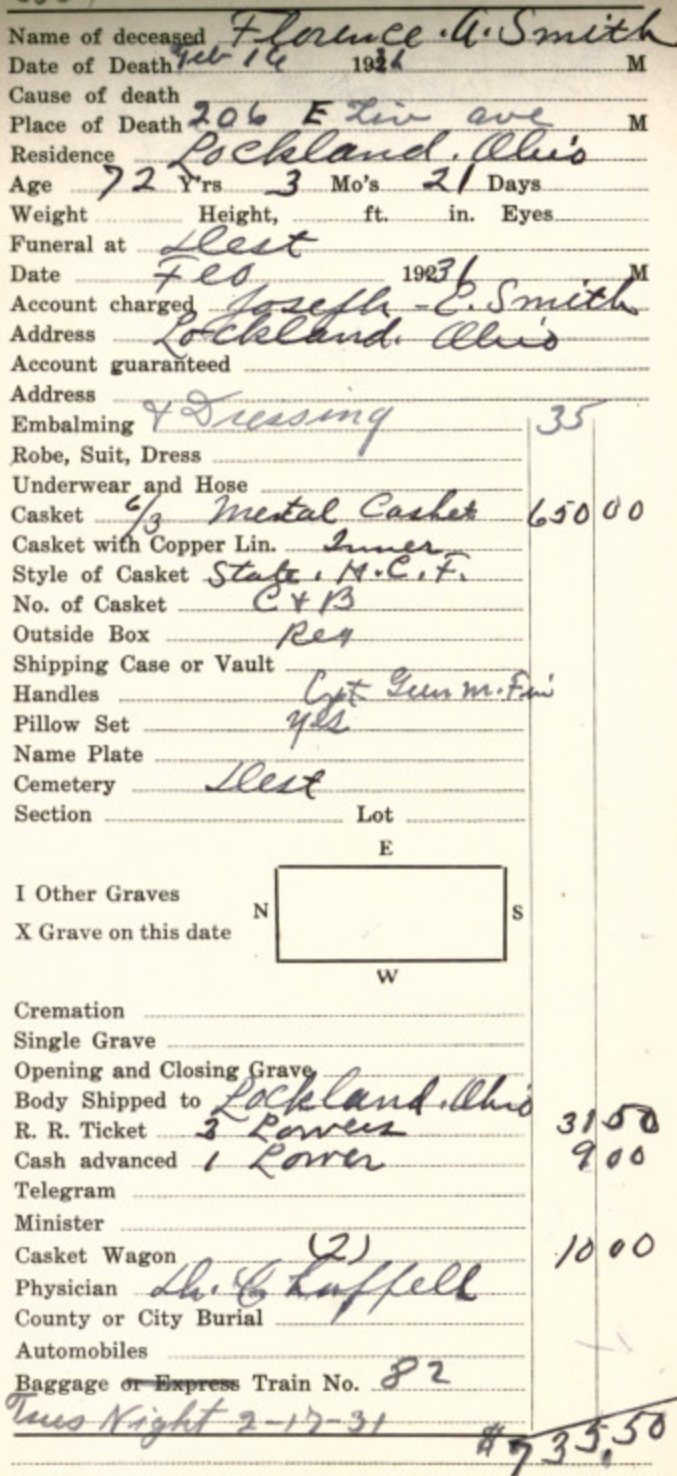 Name of deceased Florence. A. Smith
Date of Death Feb 16 1931 M
Cause of death
Place of Death 206 E Liv ave M
Residence Lockland. Ohio
Age 72 Y'rs 3 Mo's 21 Days
Weight Height, ft. in. Eyes
Funeral at Dest
Date Feb 1931 M
Account charged Joseph - E. Smith
Address Lockland. Ohio
Account guaranteed
Address
Embalming & Dressing 35
Robe, Suit, Dress
Underwear and Hose
Casket 6/3 Mental Casket 650 00
Casket with Copper Lin. Inner
Style of Casket State. H.C.F.
No. of Casket C & B
Outside Box Reg
Shipping Case or Vault
Handles
Pillow Set yes
Name Plate
Cemetery Dest
Section Lot
E
I Other Graves
N S
X Grave on this date
W
Cremation
Single Grave
Opening and Closing Grave
Body Shipped to Lockland. Ohio
R. R. Ticket 3 Lowers 31 50
Cash advanced 1 Lower 9 00
Telegram
Minister
Casket Wagon (2) 10 00
Physician Dr. C
County or City Burial
Automobiles
Baggage or Express Train No. 82
Tues Night 2-17-31
$735.50